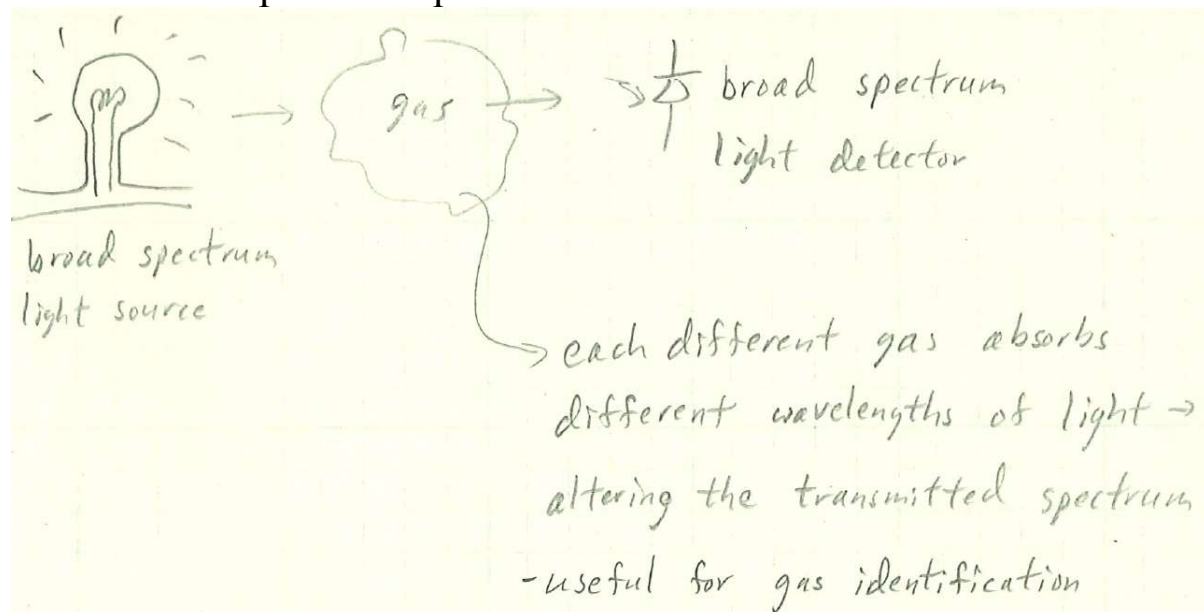 gas
broad spectrum
light detector
broad spectrum
light source
each different gas absorbs
different wavelengths of light →
altering the transmitted spectrum
- useful for gas identification